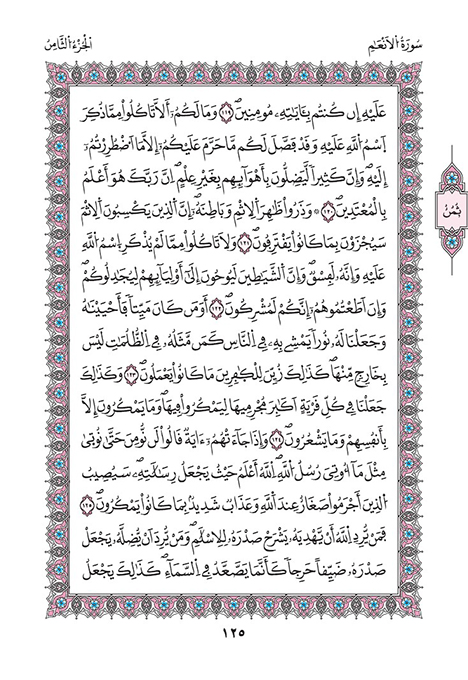 سُورَةُ الْأَنْعَامِ
الْجُزْءُ الثَّامِنُ
عَلَيْهِ إِن كُنتُم بِـَٔايَٰتِهِۦ مُومِنِينَ ۝١١٩ وَمَا لَكُمُۥٓ أَلَّا تَاكُلُواْ مِمَّا ذُكِرَ
اَسْمُ اللَّهِ عَلَيْهِ وَقَدْ فَصَّلَ لَكُم مَّا حَرَّمَ عَلَيْكُمُۥٓ إِلَّا مَا اَضْطُرِرْتُمُۥٓ
إِلَيْهِ وَإِنَّ كَثِيراً لَّيَضِلُّونَ بِأَهْوَآئِهِم بِغَيْرِ عِلْمٍ اِنَّ رَبَّكَ هُوَ أَعْلَمُ
بِالْمُعْتَدِينَ ۝١٢٠ وَذَرُواْ ظَٰهِرَ اَلِاثْمِ وَبَاطِنَهُۥٓ إِنَّ اَلذِينَ يَكْسِبُونَ اَلِاثْمَ
سَيُجْزَوْنَ بِمَا كَانُواْ يَقْتَرِفُونَ ۝١٢١ وَلَا تَاكُلُواْ مِمَّا لَمْ يُذْكَرِ اِسْمُ اللَّهِ
عَلَيْهِ وَإِنَّهُۥ لَفِسْقٌ وَإِنَّ اَلشَّيَٰطِينَ لَيُوحُونَ إِلَىٰٓ أَوْلِيَآئِهِمْ لِيُجَٰدِلُوكُمْ
وَإِنَ اَطَعْتُمُوهُمُۥٓ إِنَّكُمْ لَمُشْرِكُونَ ۝١٢٢ أَوَمَن كَانَ مَيِّتاً فَأَحْيَيْنَٰهُ
وَجَعَلْنَا لَهُۥ نُوراً يَمْشِے بِهِۦ فِے اِلنَّاسِ كَمَن مَّثَلُهُۥ فِے اِلظُّلُمَٰتِ لَيْسَ
بِخَارِجٍ مِّنْهَا كَذَٰلِكَ زُيِّنَ لِلْكَٰفِرِينَ مَا كَانُواْ يَعْمَلُونَ ۝١٢٣ وَكَذَٰلِكَ
جَعَلْنَا فِے كُلِّ قَرْيَةٍ اَكَٰبِرَ مُجْرِمِيهَا لِيَمْكُرُواْ فِيهَا وَمَا يَمْكُرُونَ إِلَّا
بِأَنفُسِهِمْ وَمَا يَشْعُرُونَ ۝١٢٤ وَإِذَا جَآءَتْهُمُۥٓ ءَايَةٌ قَالُواْ لَن نُّومِنَ حَتَّىٰ نُوتَىٰ
مِثْلَ مَا أُوتِيَ رُسُلُ اللَّهِ اِللَّهُ أَعْلَمُ حَيْثُ يَجْعَلُ رِسَٰلَٰتِهِۦ سَيُصِيبُ
اُلذِينَ أَجْرَمُواْ صَغَارٌ عِندَ اللَّهِ وَعَذَابٌ شَدِيدٌ بِمَا كَانُواْ يَمْكُرُونَ ۝١٢٥
فَمَنْ يُّرِدِ اِللَّهُ أَنْ يَّهْدِيَهُۥ يَشْرَحْ صَدْرَهُۥ لِلِاسْلَٰمِ وَمَنْ يُّرِدَ اَنْ يُّضِلَّهُۥ يَجْعَلْ
صَدْرَهُۥ ضَيِّقاً حَرِجاً كَأَنَّمَا يَصَّعَّدُ فِے اِلسَّمَآءِ كَذَٰلِكَ يَجْعَلُ
ثُمُنٌ
١٢٥